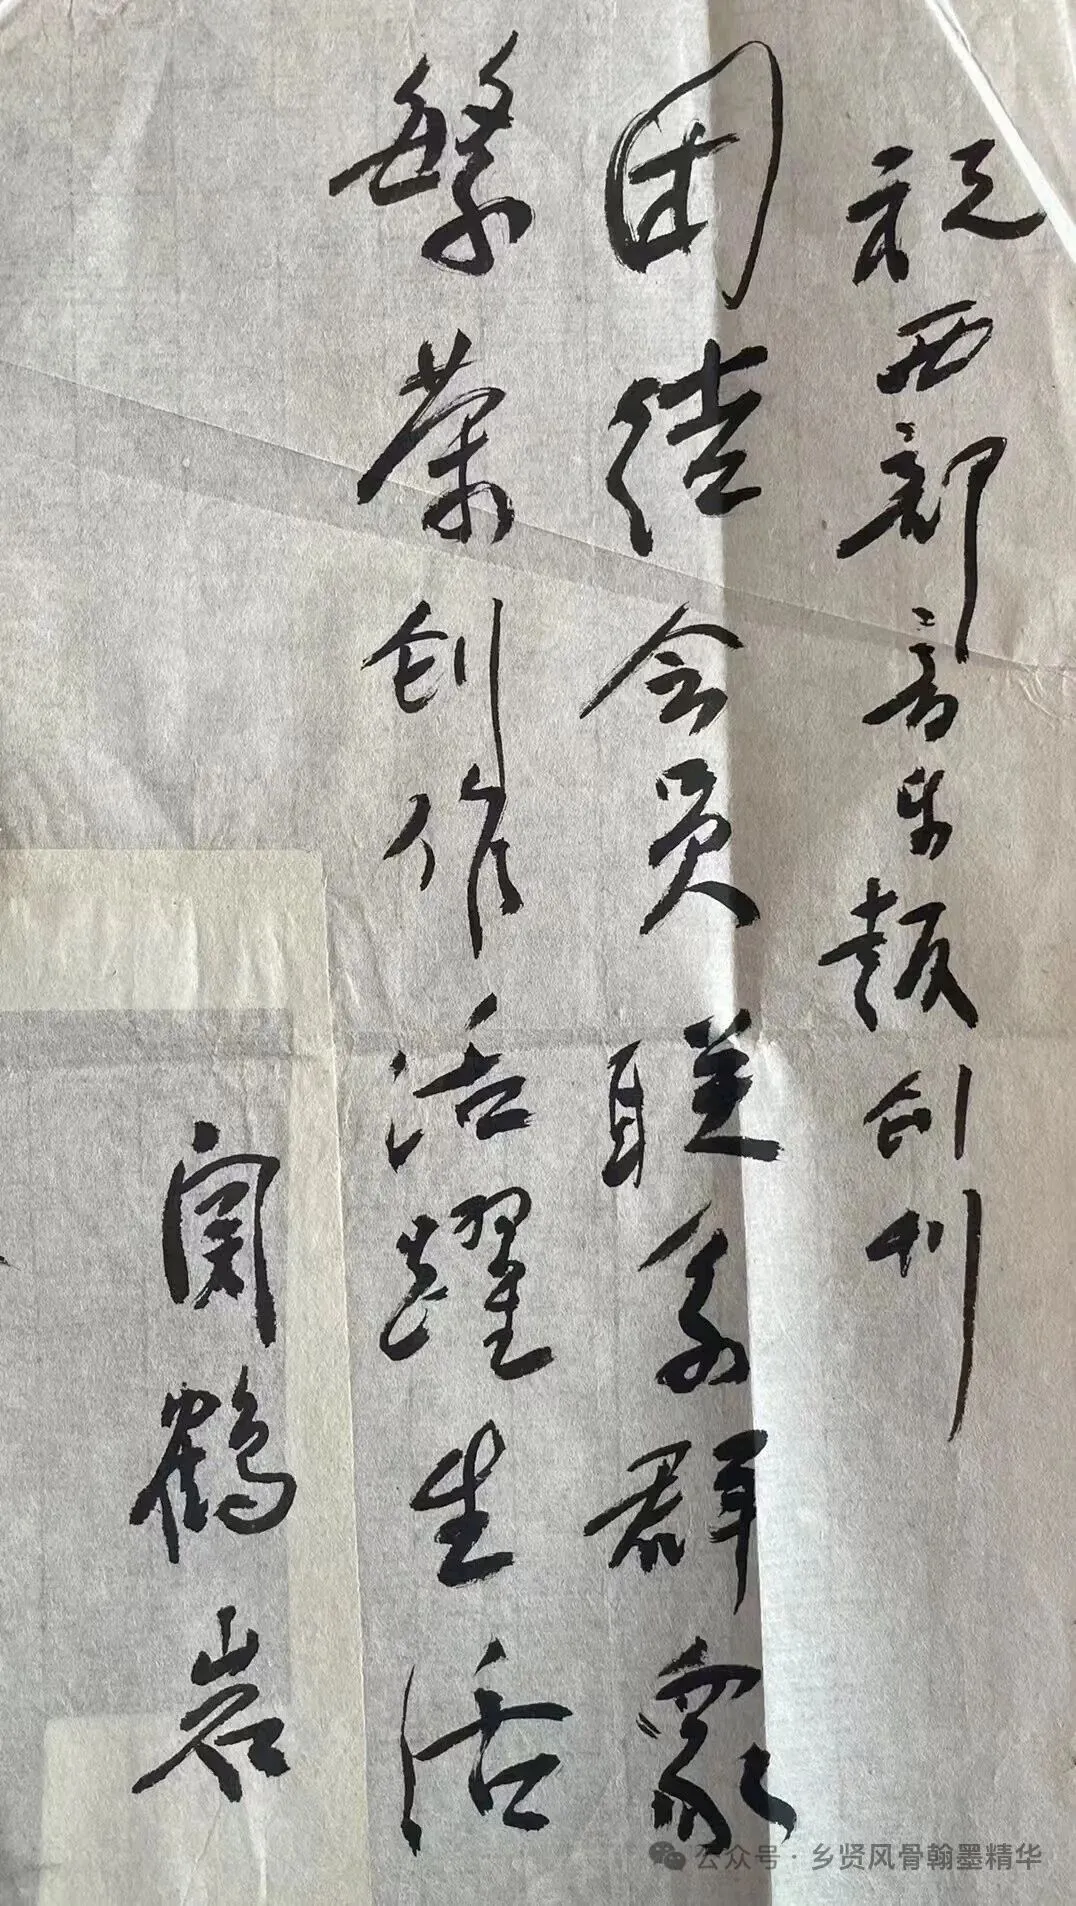 祝西部音乐报创刊
团结会员联系群众
繁荣创作活跃生活
关鹤岩
公众号·乡贤风骨翰墨精华